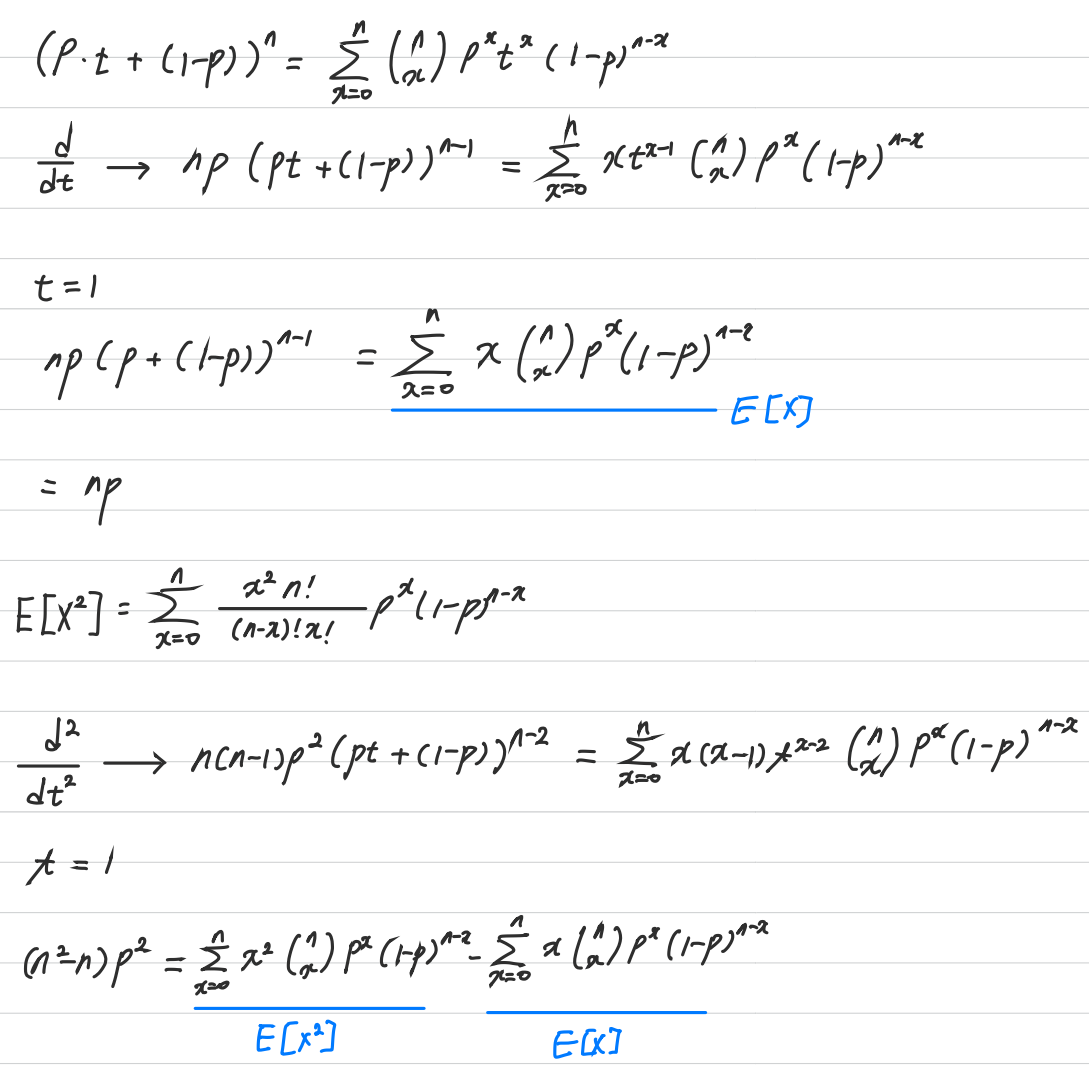 (p·t + (1-p))^n = ∑_{x=0}^{n} (n x) p^x t^x (1-p)^{n-x}
d/dt → np (pt + (1-p))^{n-1} = ∑_{x=0}^{n} x t^{x-1} (n x) p^x (1-p)^{n-x}
t = 1
np (p + (1-p))^{n-1} = ∑_{x=0}^{n} x (n x) p^x (1-p)^{n-x}
E[X]
= np
E[X²] = ∑_{x=0}^{n} x² n! / (n-x)! x! p^x (1-p)^{n-x}
d²/dt² → n(n-1)p² (pt + (1-p))^{n-2} = ∑_{x=0}^{n} x(x-1) t^{x-2} (n x) p^x (1-p)^{n-x}
t = 1
(n²-n)p² = ∑_{x=0}^{n} x² (n x) p^x (1-p)^{n-x} - ∑_{x=0}^{n} x (n x) p^x (1-p)^{n-x}
E[X²] E[X]